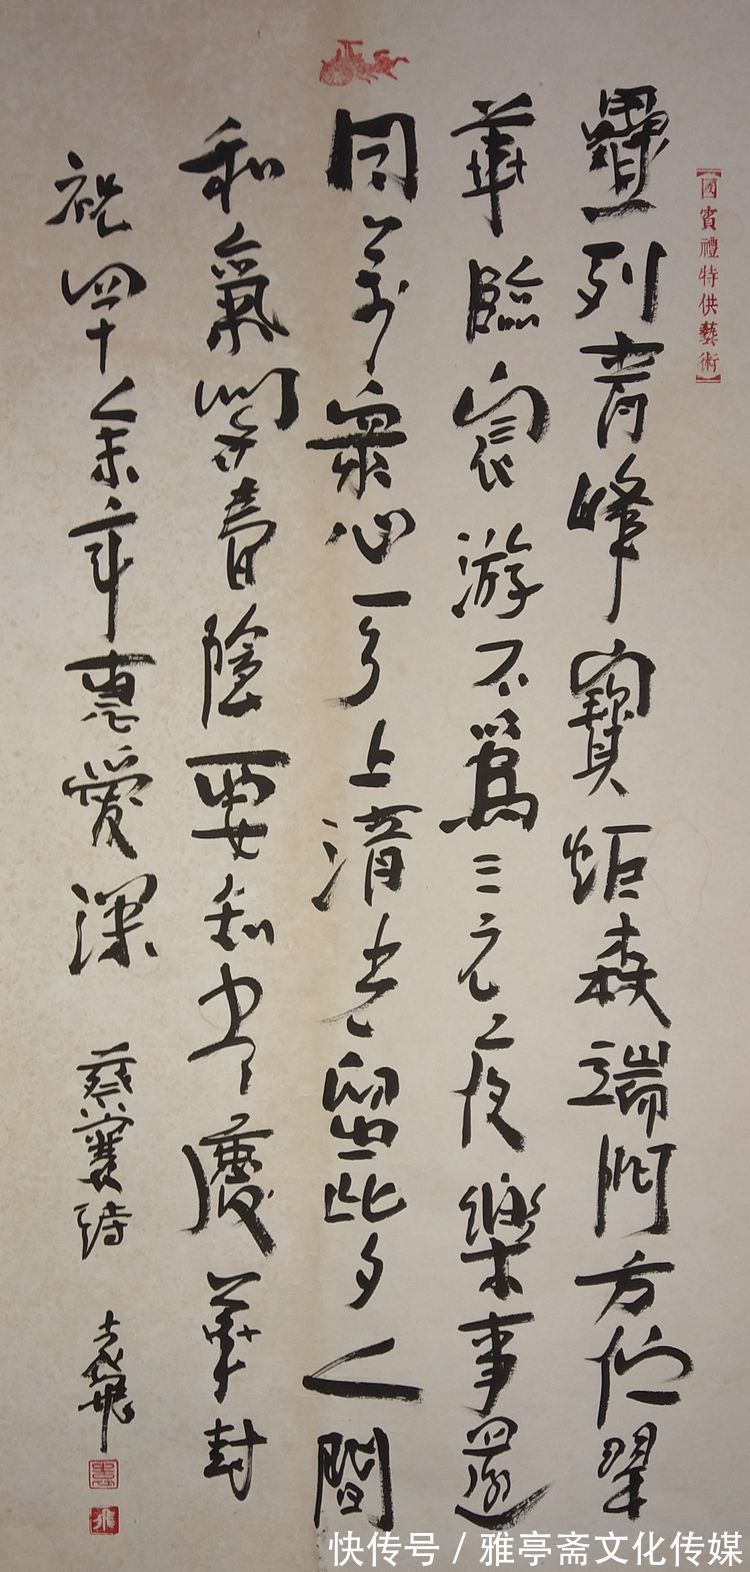 【國賓禮特供藝術】
疊列青峰寶炬森端門方伫翠
華臨宸游不爲三元夜樂事還
同萬衆心天上清光留此夕人間
和氣閣春陰要知盡慶華封
祝四十余年惠愛深 蔡襄詩
快传号 / 雅亭斋文化传媒